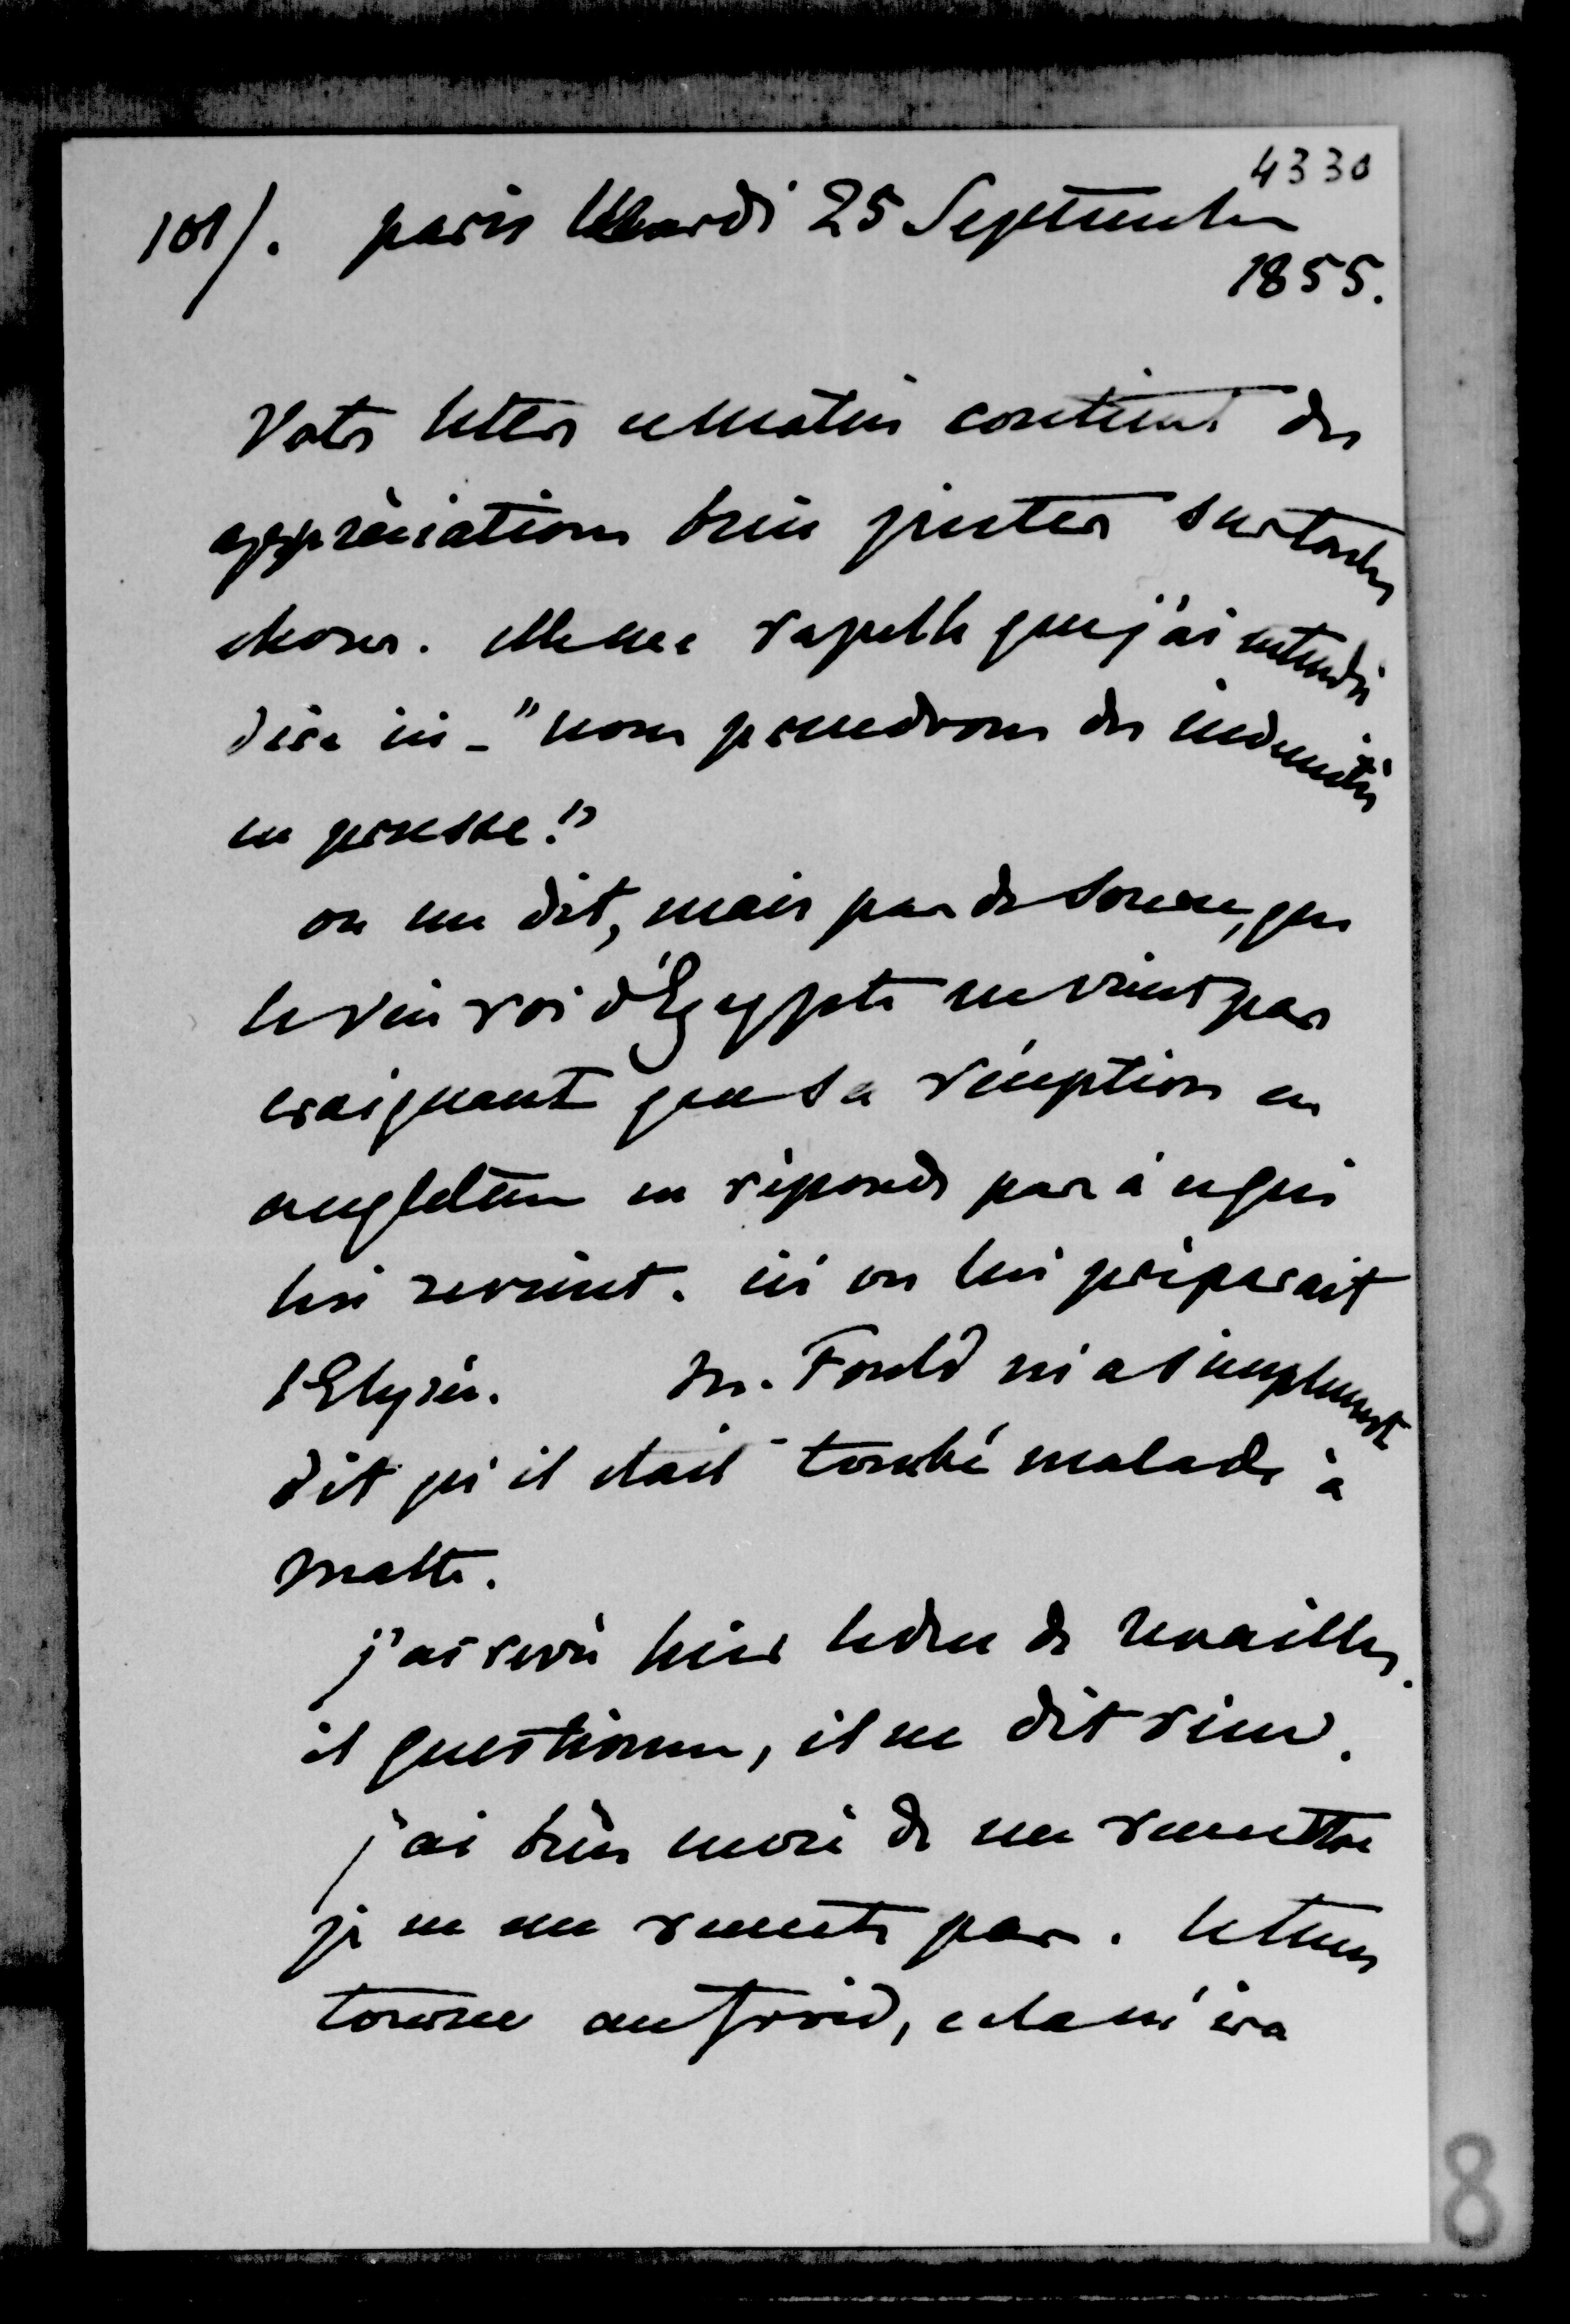 4330
101/. paris Mardi 25 Septembre
1855.
Votre lettre ce matin contient des
appréciations bien justes sur toutes
choses. elle me rapelle que j'ai entendu
dire ici - "nous prendrons des indemnités
en prusse."
on me dit, mais pas de source, que
le vice roi d'Egypte ne vient pas
craignant que sa réception en
angleterre ne réponde pas à ce qui
lui revient. ici on lui préparait
l'Elysée. M. Fould m'a simplement
dit qu'il était tombé malade à
Malte.
j'ai revu hier le duc de Noailles.
il questionne, il ne dit rien.
j'ai bien envie de me remettre
je ne me remets pas. le tems
tourne au froid, cela m'ira
8